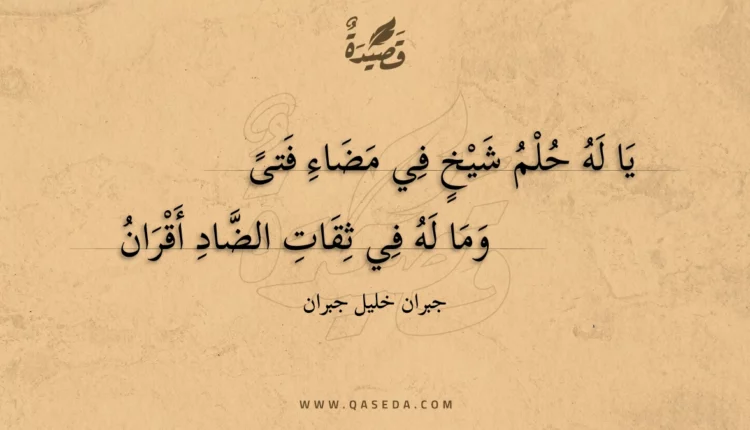 قَصِيْدَةٌ
يَا لَهُ حُلْمُ شَيْخٍ فِي مَضَاءِ فَتىً
وَمَا لَهُ فِي ثِقَاتِ الضَّادِ أَقْرَانُ
جبران خليل جبران
WWW.QASEDA.COM